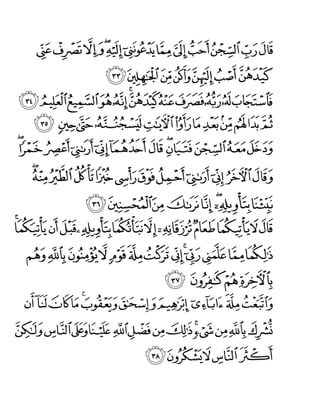 قَالَ رَبِّ ٱلسِّجْنُ أَحَبُّ إِلَىَّ مِمَّا يَدْعُونَنِىٓ إِلَيْهِ ۖ وَإِلَّا تَصْرِفْ عَنِّى
كَيْدَهُنَّ أَصْبُ إِلَيْهِنَّ وَأَكُن مِّنَ ٱلْجَٰهِلِينَ ٣٣
فَٱسْتَجَابَ لَهُۥ رَبُّهُۥ فَصَرَفَ عَنْهُ كَيْدَهُنَّ ۚ إِنَّهُۥ هُوَ ٱلسَّمِيعُ ٱلْعَلِيمُ ٣٤
ثُمَّ بَدَا لَهُم مِّنۢ بَعْدِ مَا رَأَوُا۟ ٱلْءَايَٰتِ لَيَسْجُنُنَّهُۥ حَتَّىٰ حِينٍ ٣٥
وَدَخَلَ مَعَهُ ٱلسِّجْنَ فَتَيَانِ ۖ قَالَ أَحَدُهُمَآ إِنِّىٓ أَرَىٰنِىٓ أَعْصِرُ خَمْرًا ۖ
وَقَالَ ٱلْءَاخَرُ إِنِّىٓ أَرَىٰنِىٓ أَحْمِلُ فَوْقَ رَأْسِى خُبْزًا تَأْكُلُ ٱلطَّيْرُ مِنْهُ ۖ
نَبِّئْنَا بِتَأْوِيلِهِۦٓ ۖ إِنَّا نَرَىٰكَ مِنَ ٱلْمُحْسِنِينَ ٣٦
قَالَ لَا يَأْتِيكُمَا طَعَامٌ تُرْزَقَانِهِۦٓ إِلَّا نَبَّأْتُكُمَا بِتَأْوِيلِهِۦ قَبْلَ أَن يَأْتِيَكُمَا ۚ
ذَٰلِكُمَا مِمَّا عَلَّمَنِى رَبِّىٓ ۚ إِنِّى تَرَكْتُ مِلَّةَ قَوْمٍ لَّا يُؤْمِنُونَ بِٱللَّهِ وَهُم
بِٱلْءَاخِرَةِ هُمْ كَٰفِرُونَ ٣٧
وَٱتَّبَعْتُ مِلَّةَ ءَابَآءِىٓ إِبْرَٰهِيمَ وَإِسْحَٰقَ وَيَعْقُوبَ ۚ مَا كَانَ لَنَآ أَن
نُّشْرِكَ بِٱللَّهِ مِن شَىْءٍ ۚ ذَٰلِكَ مِن فَضْلِ ٱللَّهِ عَلَيْنَا وَعَلَى ٱلنَّاسِ وَلَٰكِنَّ
أَكْثَرَ ٱلنَّاسِ لَا يَشْكُرُونَ ٣٨